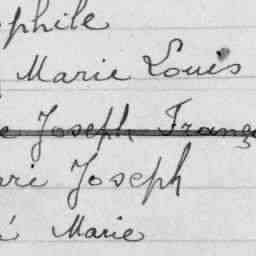 ophile
Marie Louis
e Joseph Franç
ri Joseph
é Marie